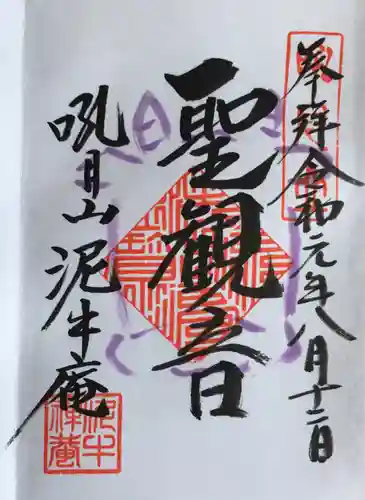 奉拝 令和元年八月十二日
聖観音
吼月山 泥牛庵
泥牛禅菴